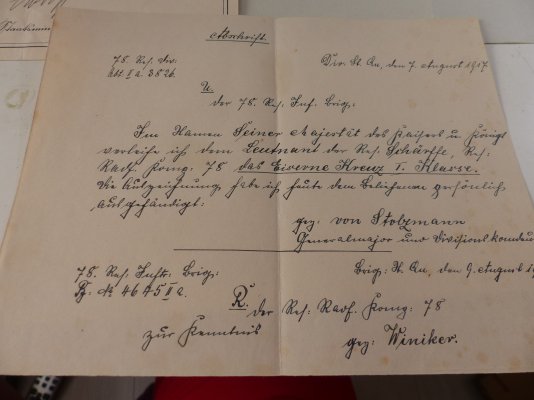 Staatsmin
Abschrift.
78. Res. Div.
Abt. II a. 3826.
Div. St. Qu., den 7. August 1917
U.
der 78. Res. Inf. Brig:
Im Namen Seiner Majestät des Kaisers u. Königs
verleihe ich dem Leutnant der Res. Schärffe, Res:
Radf. Komp. 78 das Eiserne Kreuz I. Klasse.
Die Auszeichnung habe ich heute dem Beliehenen persönlich
ausgehändigt:
gez. von Stolzmann
Generalmajor und Divisions komdeu
78. Res. Inft. Brig:
Tg. No 4645 II a.
Brig: St. Qu., den 9. August 1
R.
der Res: Radf. Komp. 78
zur Kenntnis
gez: Winiker.